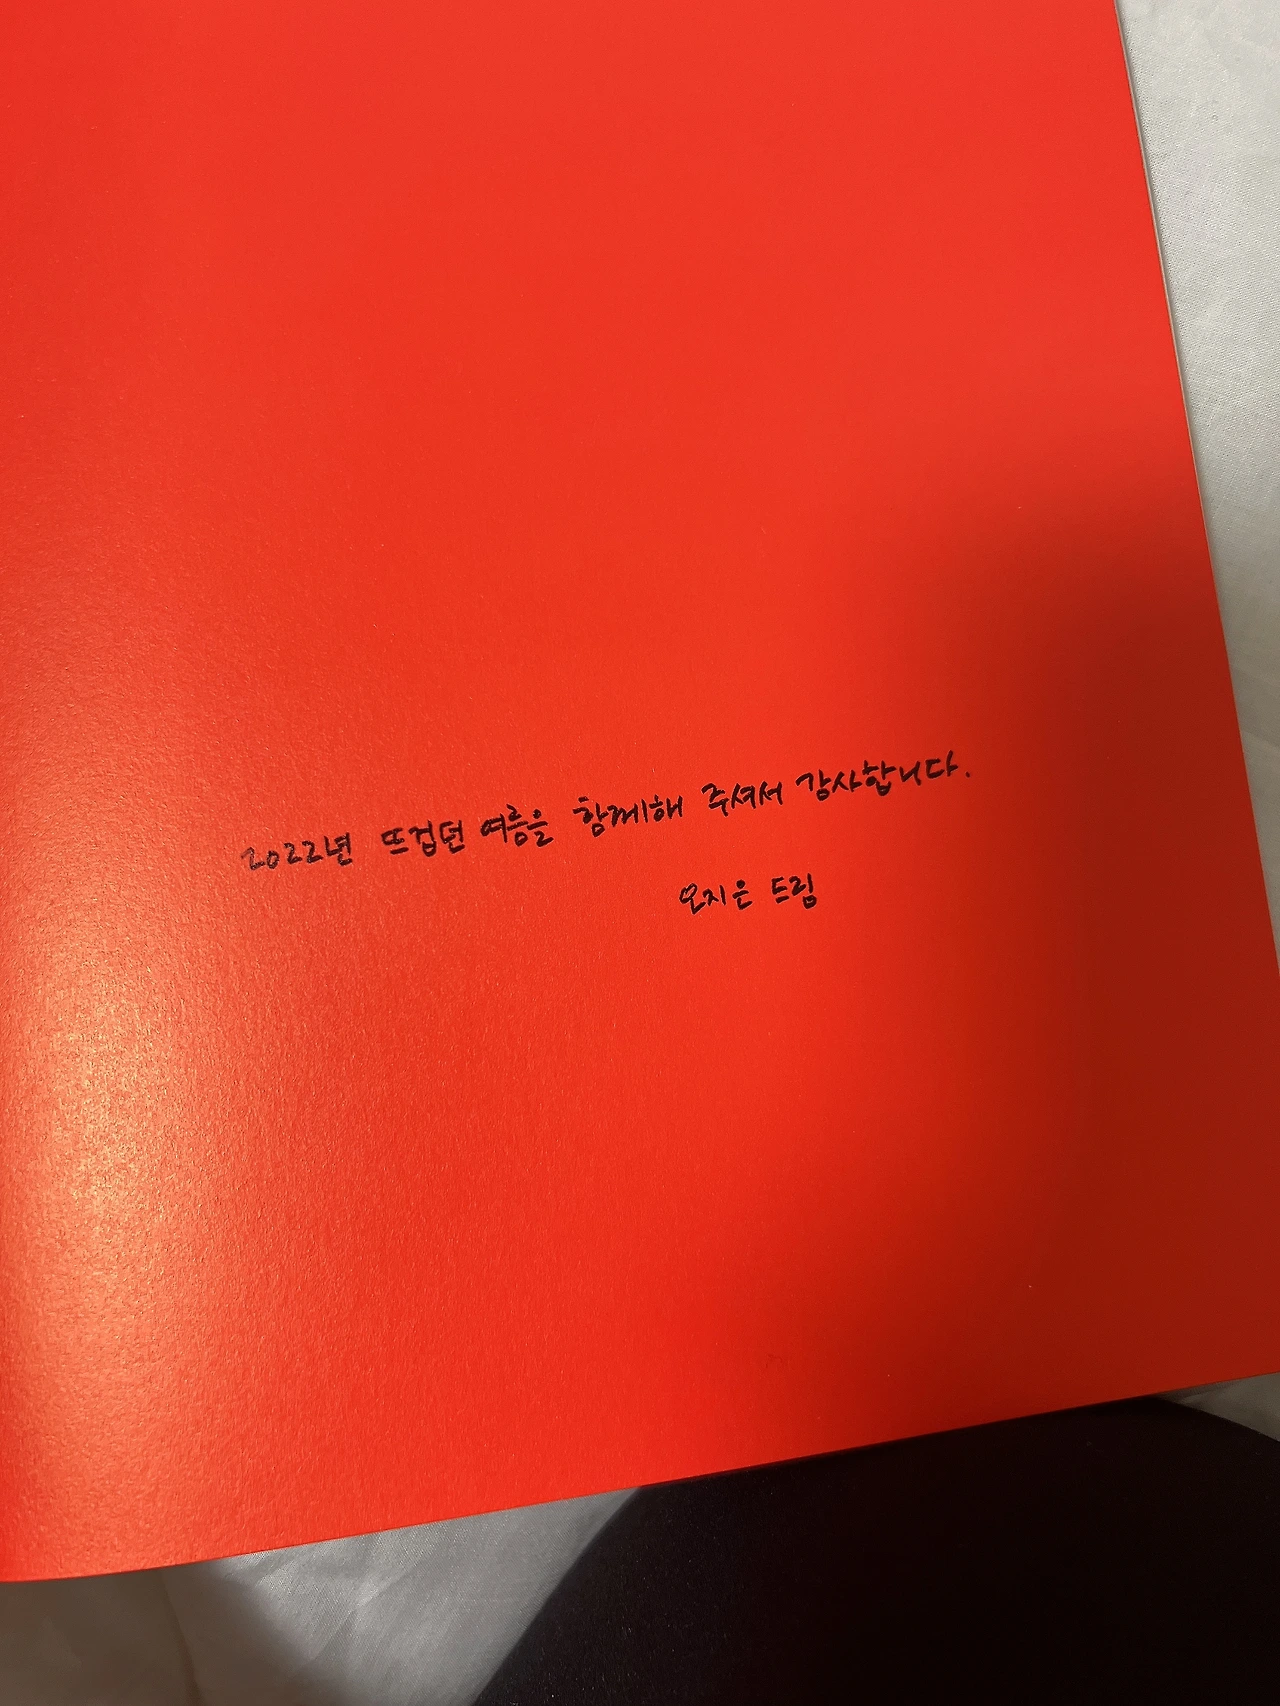 2022년 뜨겁던 여름을 함께해 주셔서 감사합니다.
오지은 드림